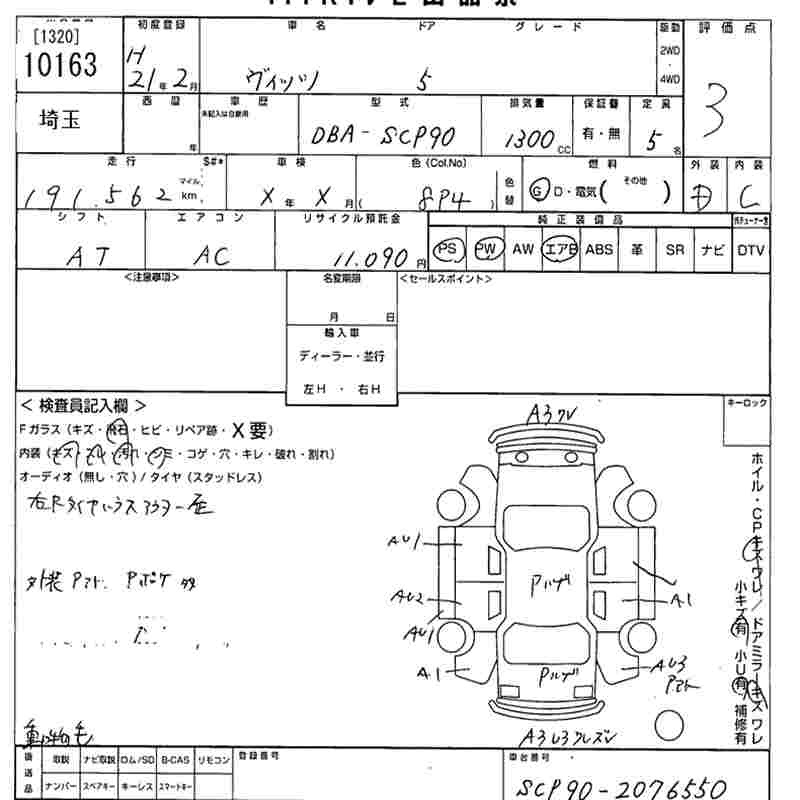 [1320]
10163
初度登録
H
21年2月
車名
ヴィッツ
ドア
5
グレード
駆動
2WD
・
4WD
評価点
3
埼玉
西暦
年
車歴
未記入は自家用
型式
DBA-SCP90
排気量
1300cc
保証書
有・無
定員
5名
走行
S#*
191,562
マイル
km
車検
X年X月
色(Col.No)
( 8P4 )
色替
燃料
G D・電気( その他 )
外装
D
内装
C
シフト
AT
エアコン
AC
リサイクル預託金
11,090円
純正装備品
PS PW AW エアB ABS 革 SR ナビ DTV
<注意事項>
名変期限
月 日
<セールスポイント>
輸入車
ディーラー・並行
左H・右H
<検査員記入欄>
キーロック
Fガラス(キズ・飛石・ヒビ・リペア跡・X要)
内装(キズ・スレ・汚れ・シミ・コゲ・穴・キレ・破れ・割れ)
オーディオ(無し・穴)/タイヤ(スタッドレス)
外装 Pアト、Pボケ 多
A3 ワレ
AU1
AU2
AU1
A1
Pハゲ
A1
AU3
Pアト
Pハゲ
ホイル・CPキズワレ/ドアミラーキズワレ
小キズ有 小U有 補修有
後送品
取説 ナビ取説 ロム/SD B-CAS リモコン
ナンバー スペアキー キーレス スマートキー
登録番号
車台番号
SCP90-2076550